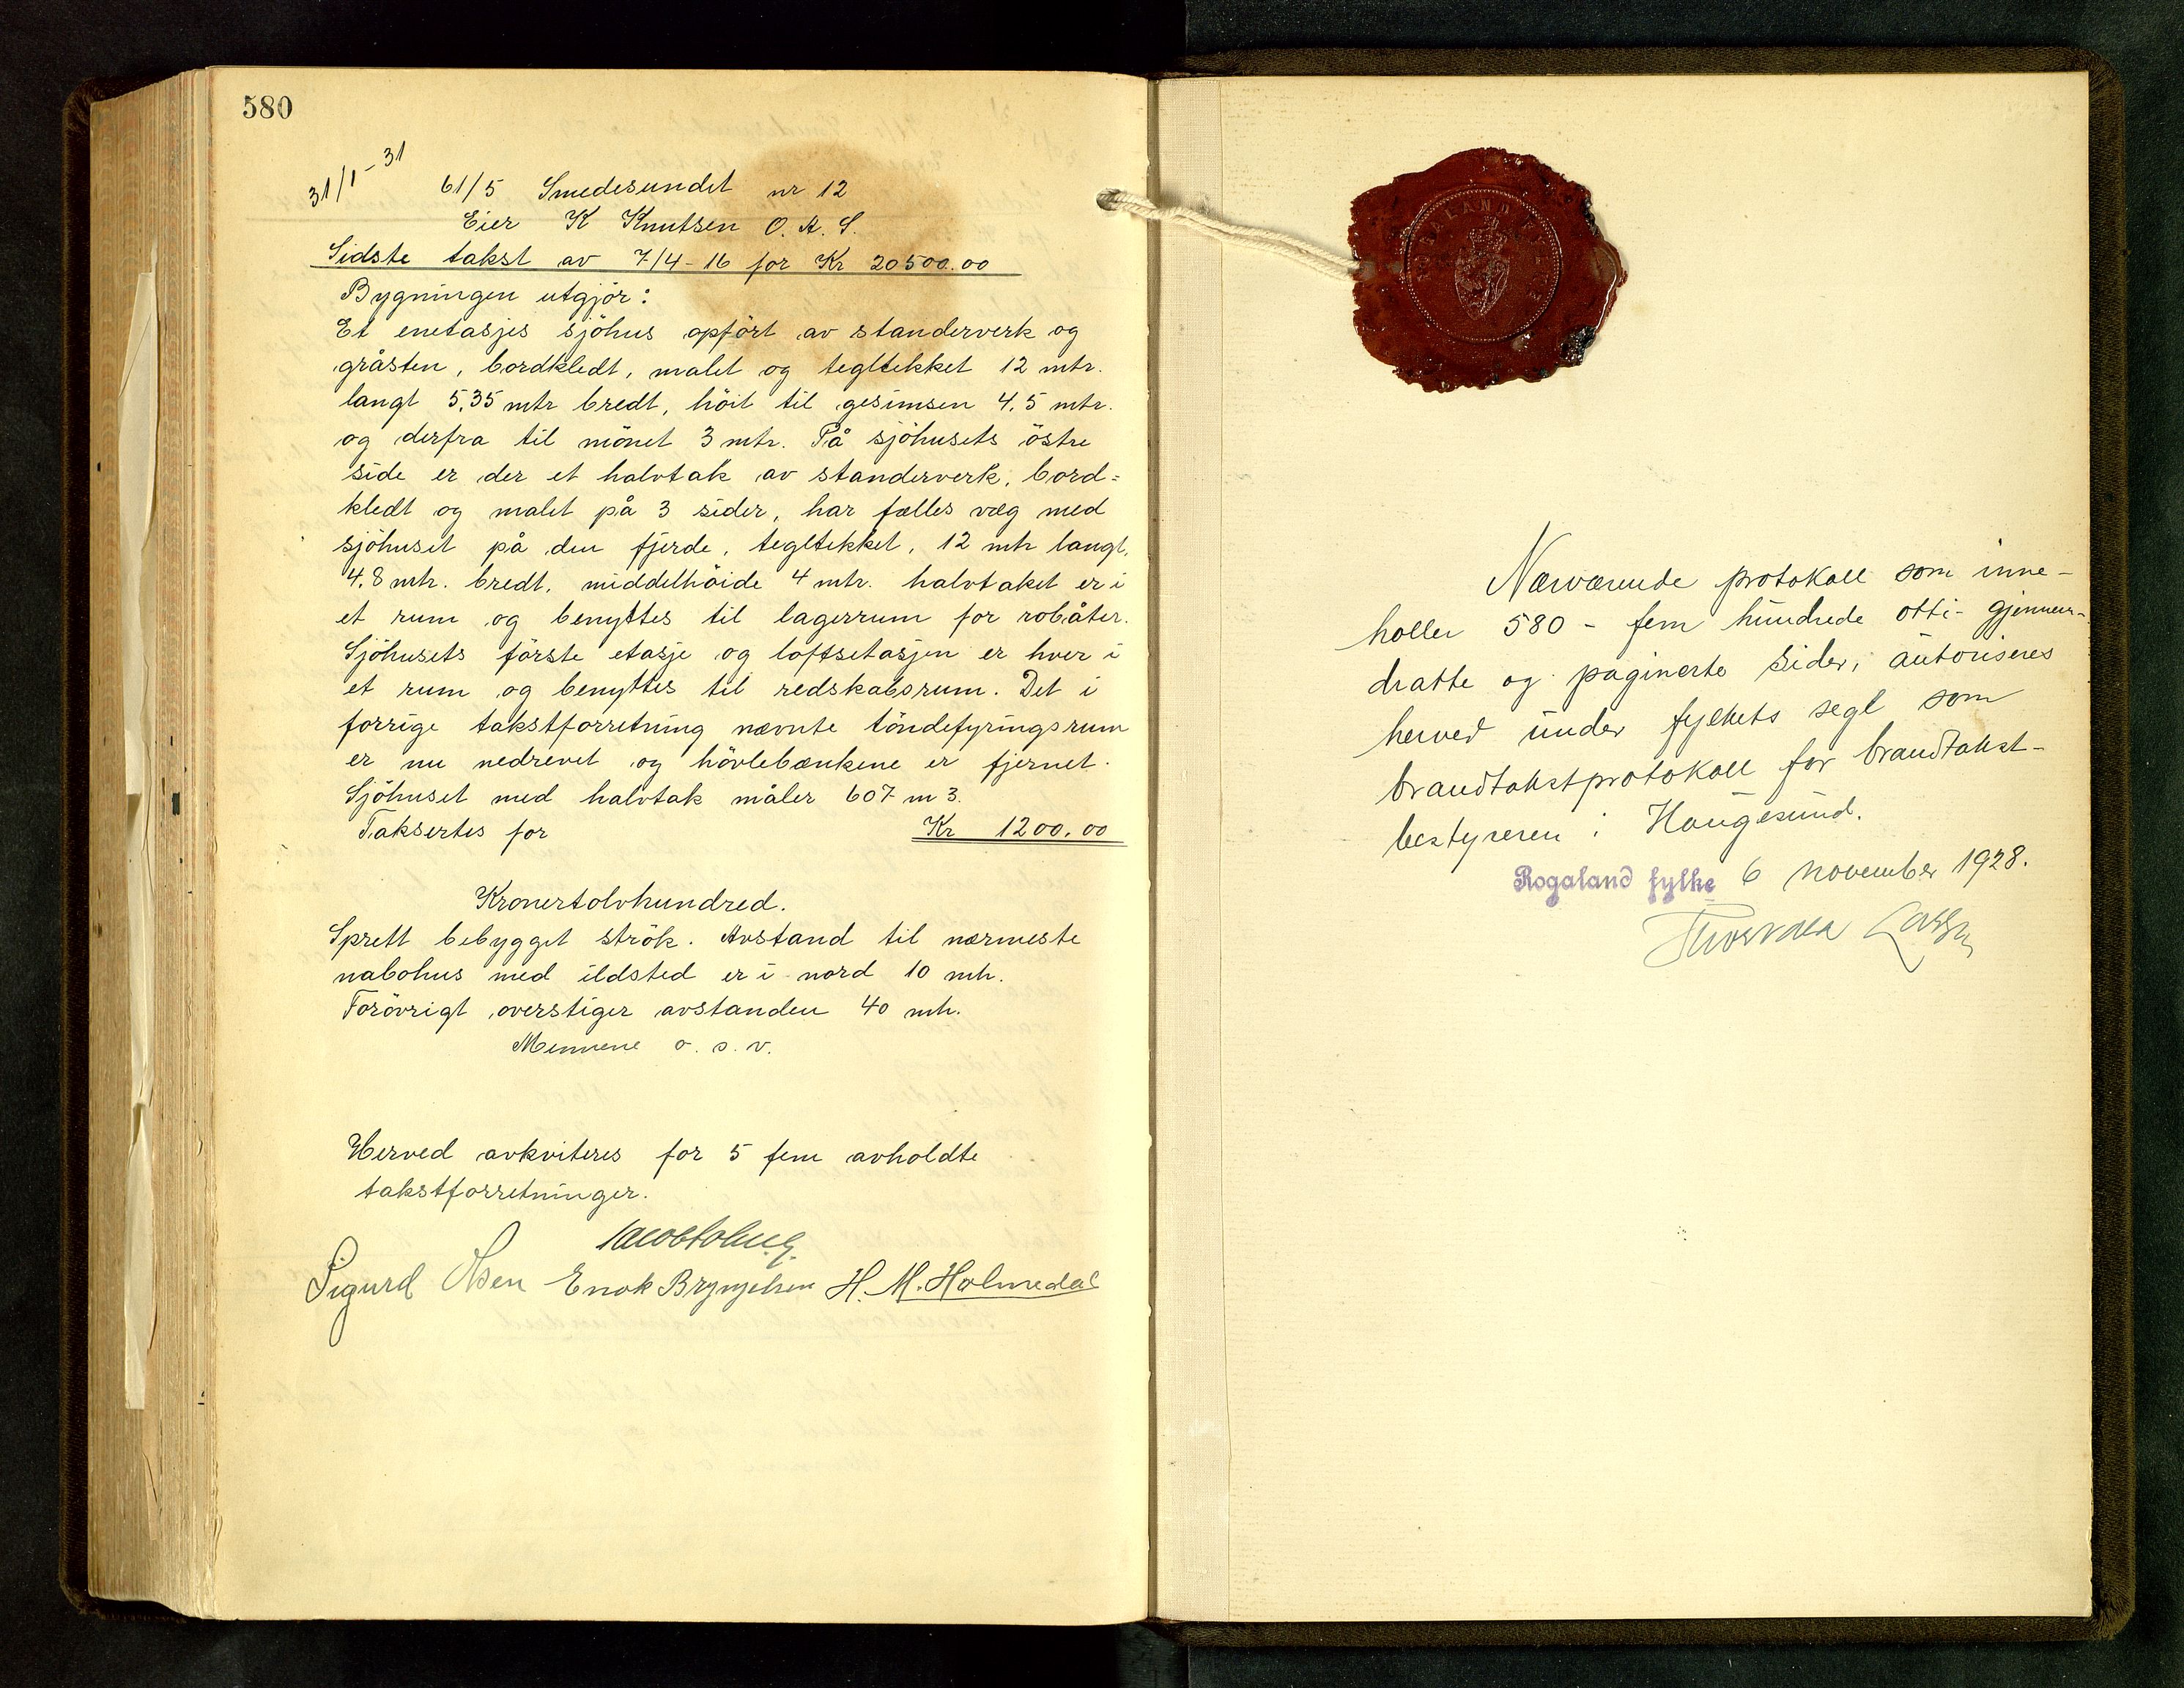 580
31/1-31
61/5 Smedesundet nr 12
Eier K Knutsen O. A. S.
Sidste takst av 7/4-16 for Kr 20500.00
Bygningen utgjör:
Et enetasjes sjöhus opfört av standerverk og
gråsten, bordkledt, malet og tegltekket 12 mtr.
langt 5,35 mtr bredt, höit til gesimsen 4,5 mtr.
og derfra til mönet 3 mtr. På sjöhusets östre
side er der et halvtak av standerverk, bord=
kledt og malet på 3 sider, har fælles væg med
sjöhuset på den fjerde, tegltekket, 12 mtr langt,
4,8 mtr. bredt, middelhöide 4 mtr. halvtaket er i
et rum og benyttes til lagerrum for robåter.
Sjöhusets förste etasje og loftsetasjen er hver i
et rum og benyttes til redskabsrum. Det i
forrige takstforretning nævnte töndefyringsrum
er nu nedrevet og hövlebænkene er fjernet.
Sjöhuset med halvtak måler 607 m3.
Taksertes for Kr 1200,00
Kronertolvhundred.
Sprett bebygget strök. Avstand til nærmeste
nabohus med ildsted er i nord 10 mtr.
Forövrigt overstiger avstanden 40 mtr.
Mennene o. s. v.
Herved avkviteres for 5 fem avholdte
takstforretninger.
Sigurd Olsen Enok Brynjelsen H. M. Holmedal
ROGALAND FYLKE
Nærværende protokoll som inne-
holler 580 - fem hundrede otti - gjennem-
dratte og paginerte sider, autoriseres
herved under fylkets segl som
brandtakstprotokoll for brandtakst-
bestyreren i Haugesund.
Rogaland fylke 6 november 1928.